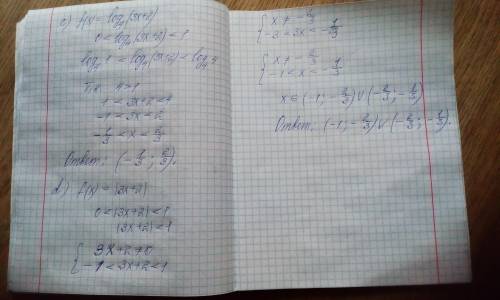 c) f(x) = log₄(3x+2)
0 < log₄(3x+2) < 1
log₄1 < log₄(3x+2) < log₄4
Т.к. 4>1
1 < 3x+2 < 4
-1 < 3x < 2
-1/3 < x < 2/3
Ответ: (-1/3; 2/3).
d) f(x) = |3x+2|
0 < |3x+2| < 1
|3x+2| < 1
{ 3x+2≠0
-1 < 3x+2 < 1
{ x ≠ -2/3
-3 < 3x < -1
{ x ≠ -2/3
-1 < x < -1/3
x ∈ (-1; -2/3) ∪ (-2/3; -1/3)
Ответ: (-1; -2/3) ∪ (-2/3; -1/3).